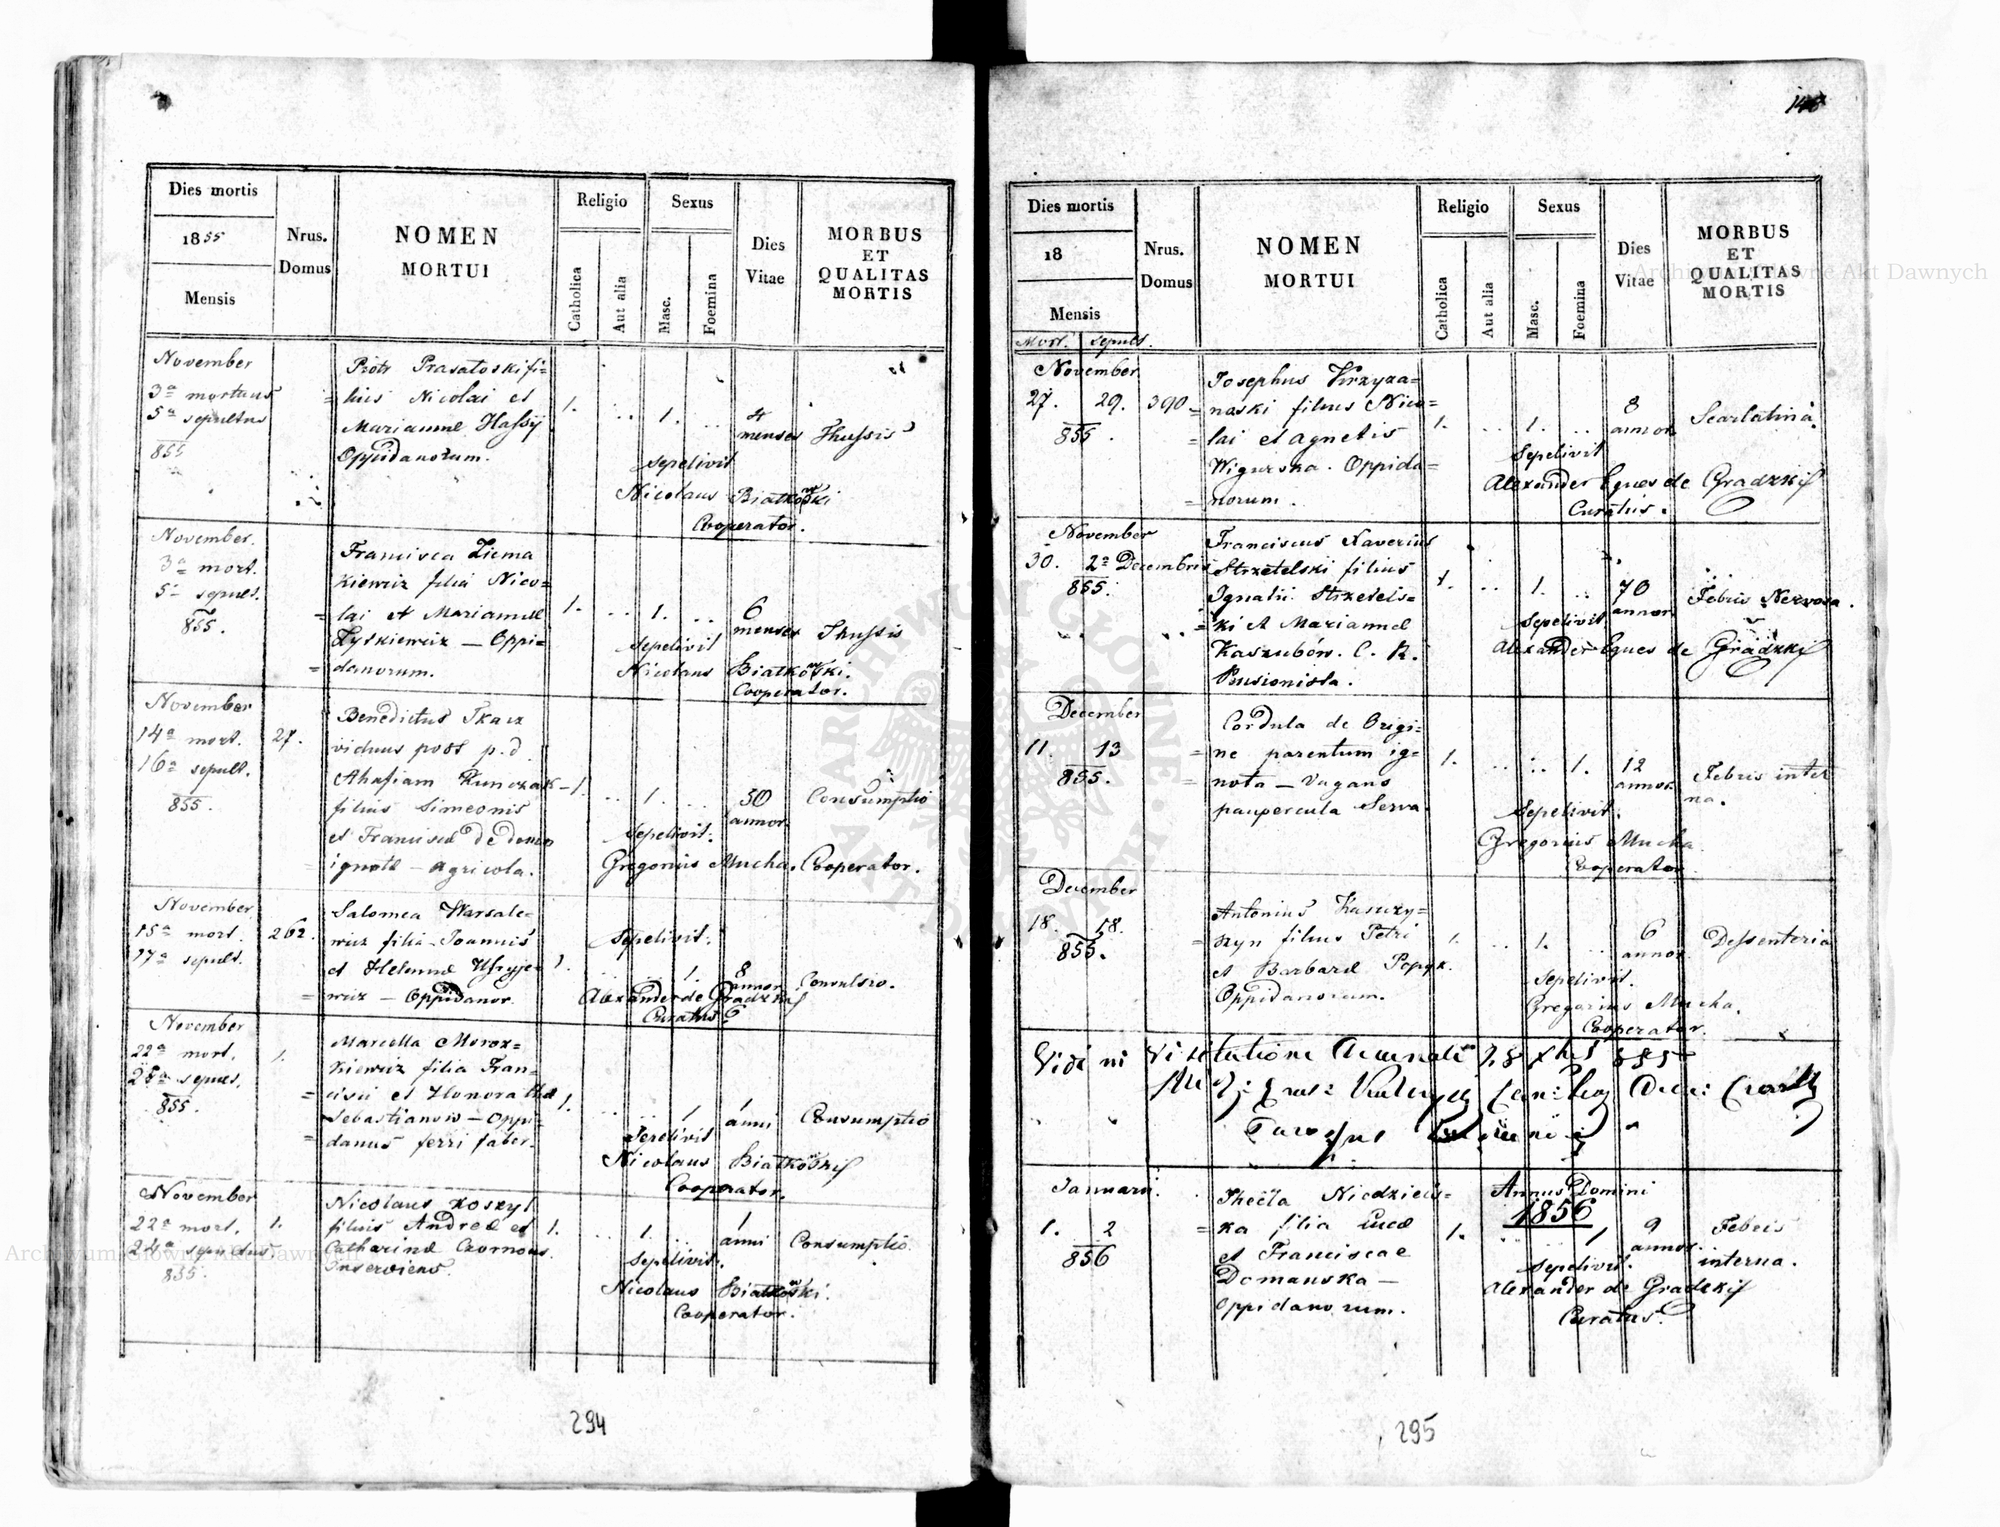 Dies mortis
1855
Mensis
Nrus.
Domus
NOMEN
MORTUI
Religio
Catholica
Aut alia
Sexus
Masc.
Foemina
Dies
Vitae
MORBUS
ET
QUALITAS
MORTIS
November
3a mortuus
5a sepultus
855
Piotr Prasatoski fi=
lius Nicolai et
Marianne Hassy
Oppidanorum.
1. .. 1. ..
4
menses
Thussis
Sepelivit
Nicolaus Białkowski
Cooperator.
November.
3a mort.
5a sepult.
855.
Francisca Ziema
kiewicz filia Nico=
lai et Marianne
Zyskiewicz — Oppi=
danorum.
1. .. 1. ..
6
menses
Thussis
Sepelivit
Nicolaus Białkowski.
Cooperator.
November
14a mort. 27.
16a sepult.
855.
Benedictus Tkacz
viduus post p. d
Ahafiam Kunczak
filius Simeonis
et Francisca de domo
ignota — agricola.
1. .. 1. ..
50
annor.
Consumptio
Sepelivit.
Gregorius Mucha. Cooperator.
November
15a mort. 262.
17a sepult.
Salomea Warsale=
wicz filia Joannis
et Helenae
wicz — Oppidanor.
Sepelivit.
1. .. .. 1.
8
annor.
Convulsio.
Alexander de Gradzki
Curatus
November
22a mort. 1.
28a sepult.
855.
Marcella Moroz=
kiewicz filia Fran=
cisci et Honorata
Sebastianow — Oppi=
danus ferri faber.
1. .. .. 1
1
anni
Consumptio
Sepelivit
Nicolaus Białkowski
Cooperator.
November
22a mort. 1.
24a sepultus
855.
Nicolaus Koszyl
filius Andreae et
Catharinae Czornous
Inserviens.
1. .. 1. ..
1
anni
Consumptio.
Sepelivit.
Nicolaus Białkowski.
Cooperator.
294
148
Dies mortis
18
Mensis
Mort. Sepult.
Nrus.
Domus
NOMEN
MORTUI
Religio
Catholica
Aut alia
Sexus
Masc.
Foemina
Dies
Vitae
MORBUS
ET
QUALITAS
MORTIS
November
27. 29. 390
855.
Josephus Krzyża=
naski filius Nico=
lai et Agnetis
Wigurska. Oppida=
norum.
1. .. 1. ..
8
annor.
Scarlatina.
Sepelivit
Alexander Eques de Gradzki
Curatus.
November
30. 2a Decembris
855.
Franciscus Xaverius
Strzetelski filius
Ignatii Strzetels=
ki et Marianne
Kaszubów. C. R.
Pensionista.
1. .. 1. ..
70
annor.
Febris Nervosa.
Sepelivit
Alexander Eques de Gradzki
December
11. 13
855.
Cordula de Origi=
ne parentum ig=
nota — Vagans
paupercula Serva
1. .. .. 1.
12
annor.
Febris inter
na.
Sepelivit.
Gregorius Mucha
Cooperator
December
18. 18.
855.
Antonius Kaszczy=
szyn filius Petri
et Barbarae Popyk.
Oppidanorum.
1. .. 1. ..
6
annor.
Dessenteria
Sepelivit.
Gregorius Mucha.
Cooperator.
Vidi in Visitatione Decanali 28 Xbris 855
Januarii.
1. 2
856
Thecla Niedziels=
ka filia Lucae
et Franciscae
Domanska —
Oppidanorum.
Annus Domini
1856
1. .. .. 1
9
annor.
Febris
interna.
Sepelivit.
Alexander de Gradzki
Curatus.
295
Archiwum Główne Akt Dawnych
Archiwum Główne Akt Dawnych